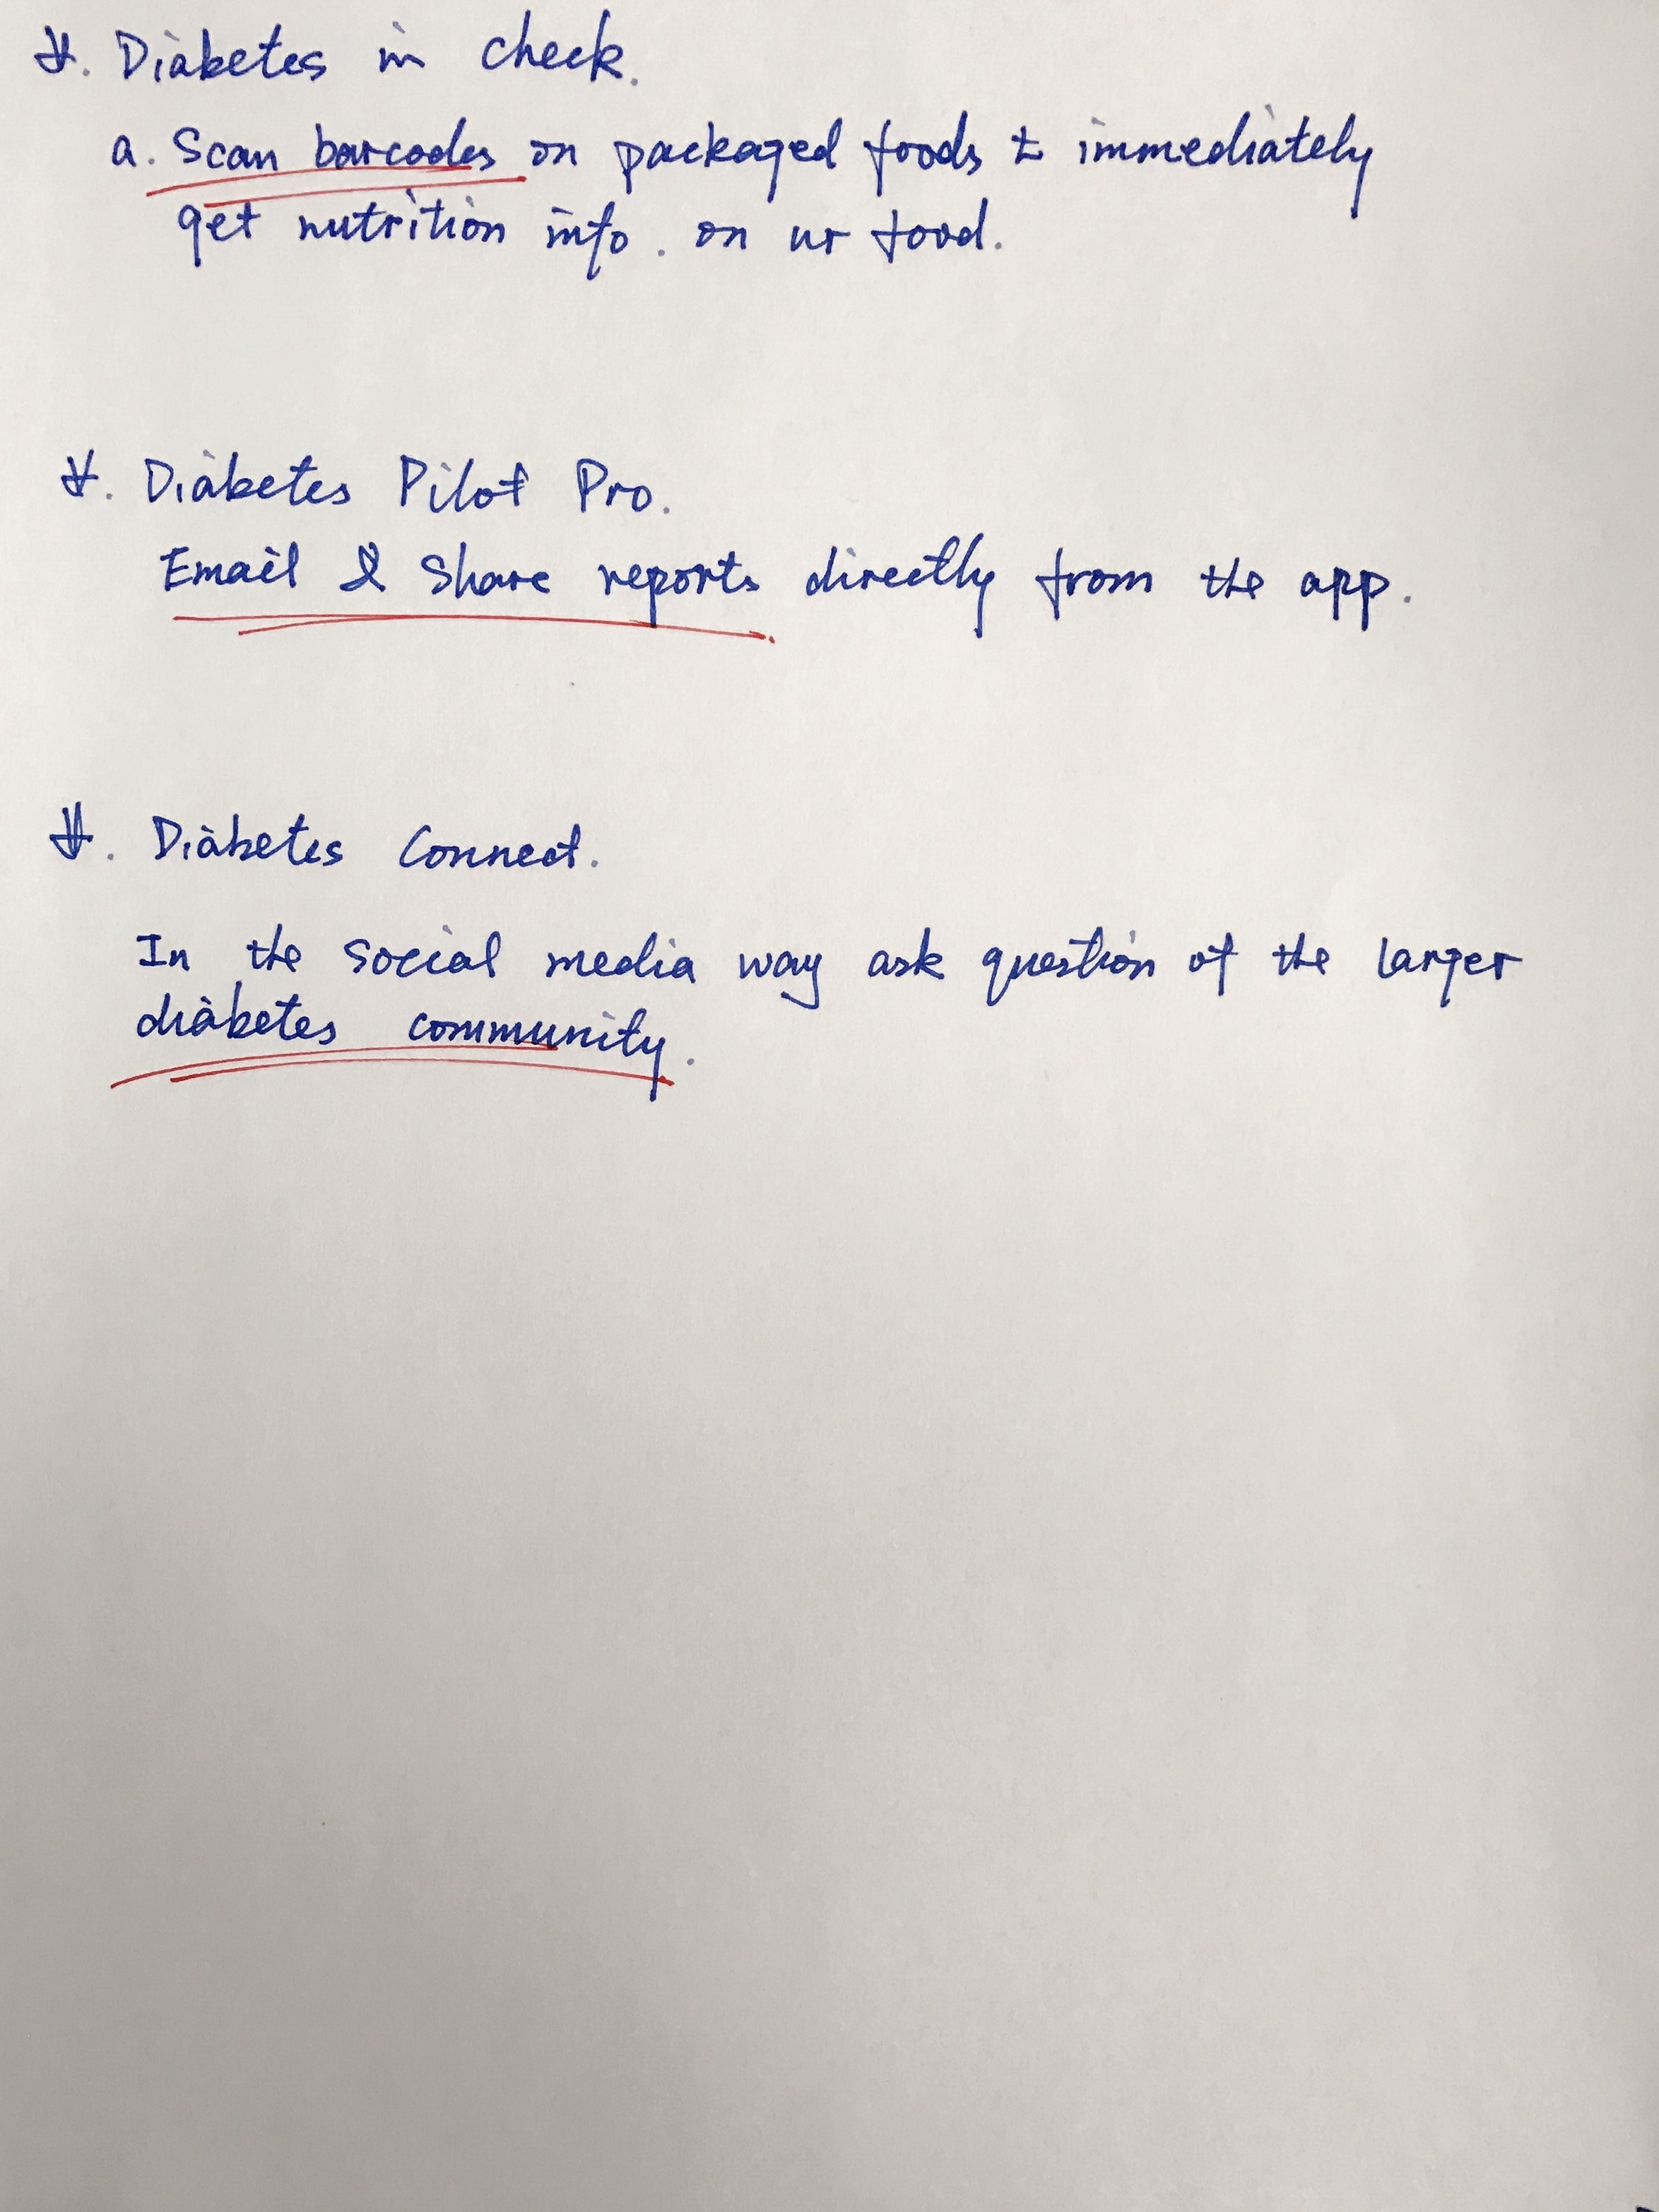 #. Diabetes in check.
a. Scan barcodes on packaged foods & immediately
get nutrition info. on ur food.
#. Diabetes Pilot Pro.
Email & Share reports directly from the app.
#. Diabetes Connect.
In the social media way ask question of the larger
diabetes community.